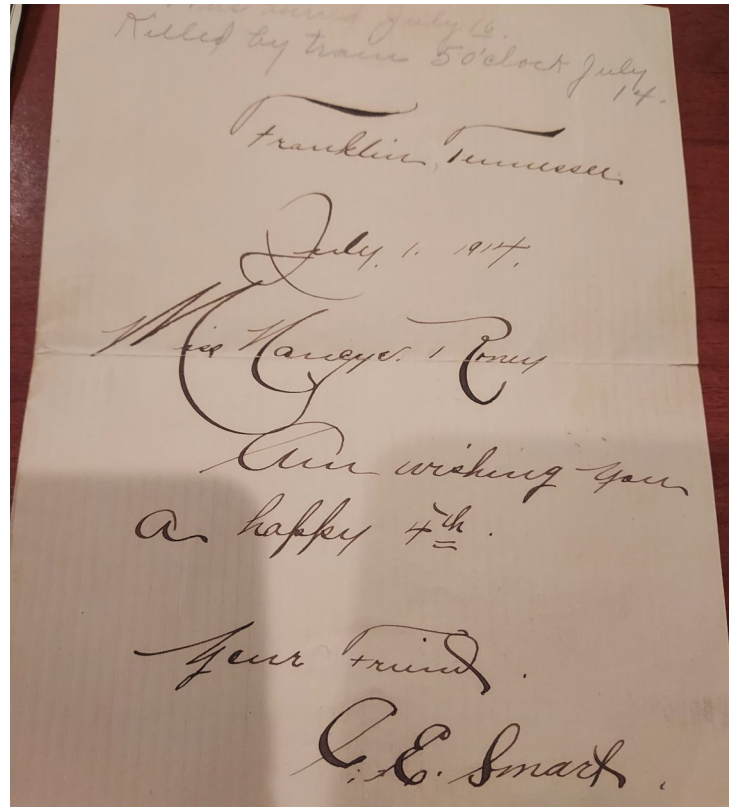 buried July 16.
Killed by train 5 o'clock July
14.
Franklin, Tennessee.
July. 1. 1914.
Miss Nancye. Roney
Am wishing you
a happy 4th.
Your Friend.
C. E. Smart.